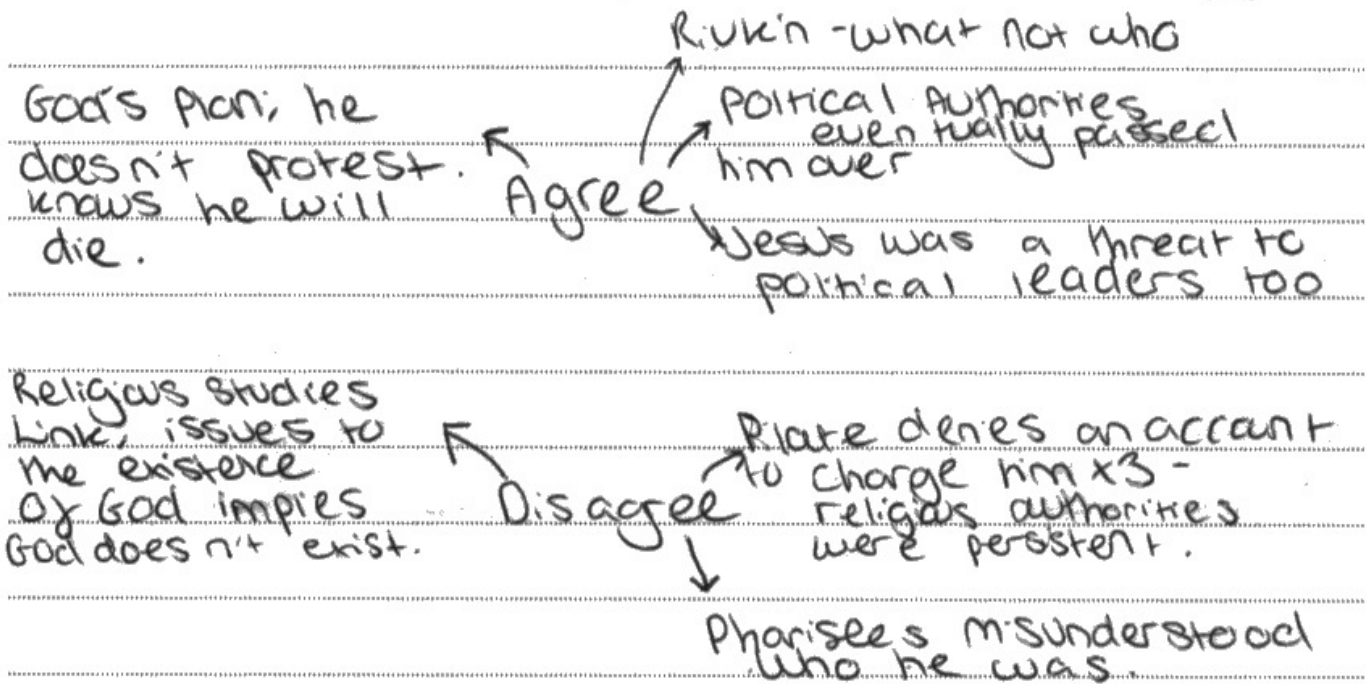 Rivkin - what not who
God's plan, he
doesn't protest.
knows he will
die.
Agree
political Authorities
eventually passed
him over
Jesus was a threat to
political leaders too
Religious studies
Link, issues to
the existence
of God impies
God does n't exist.
Disagree
Pilate denies an account
to charge him x3 -
religious authorities
were persistent.
Pharisees misunderstood
who he was.